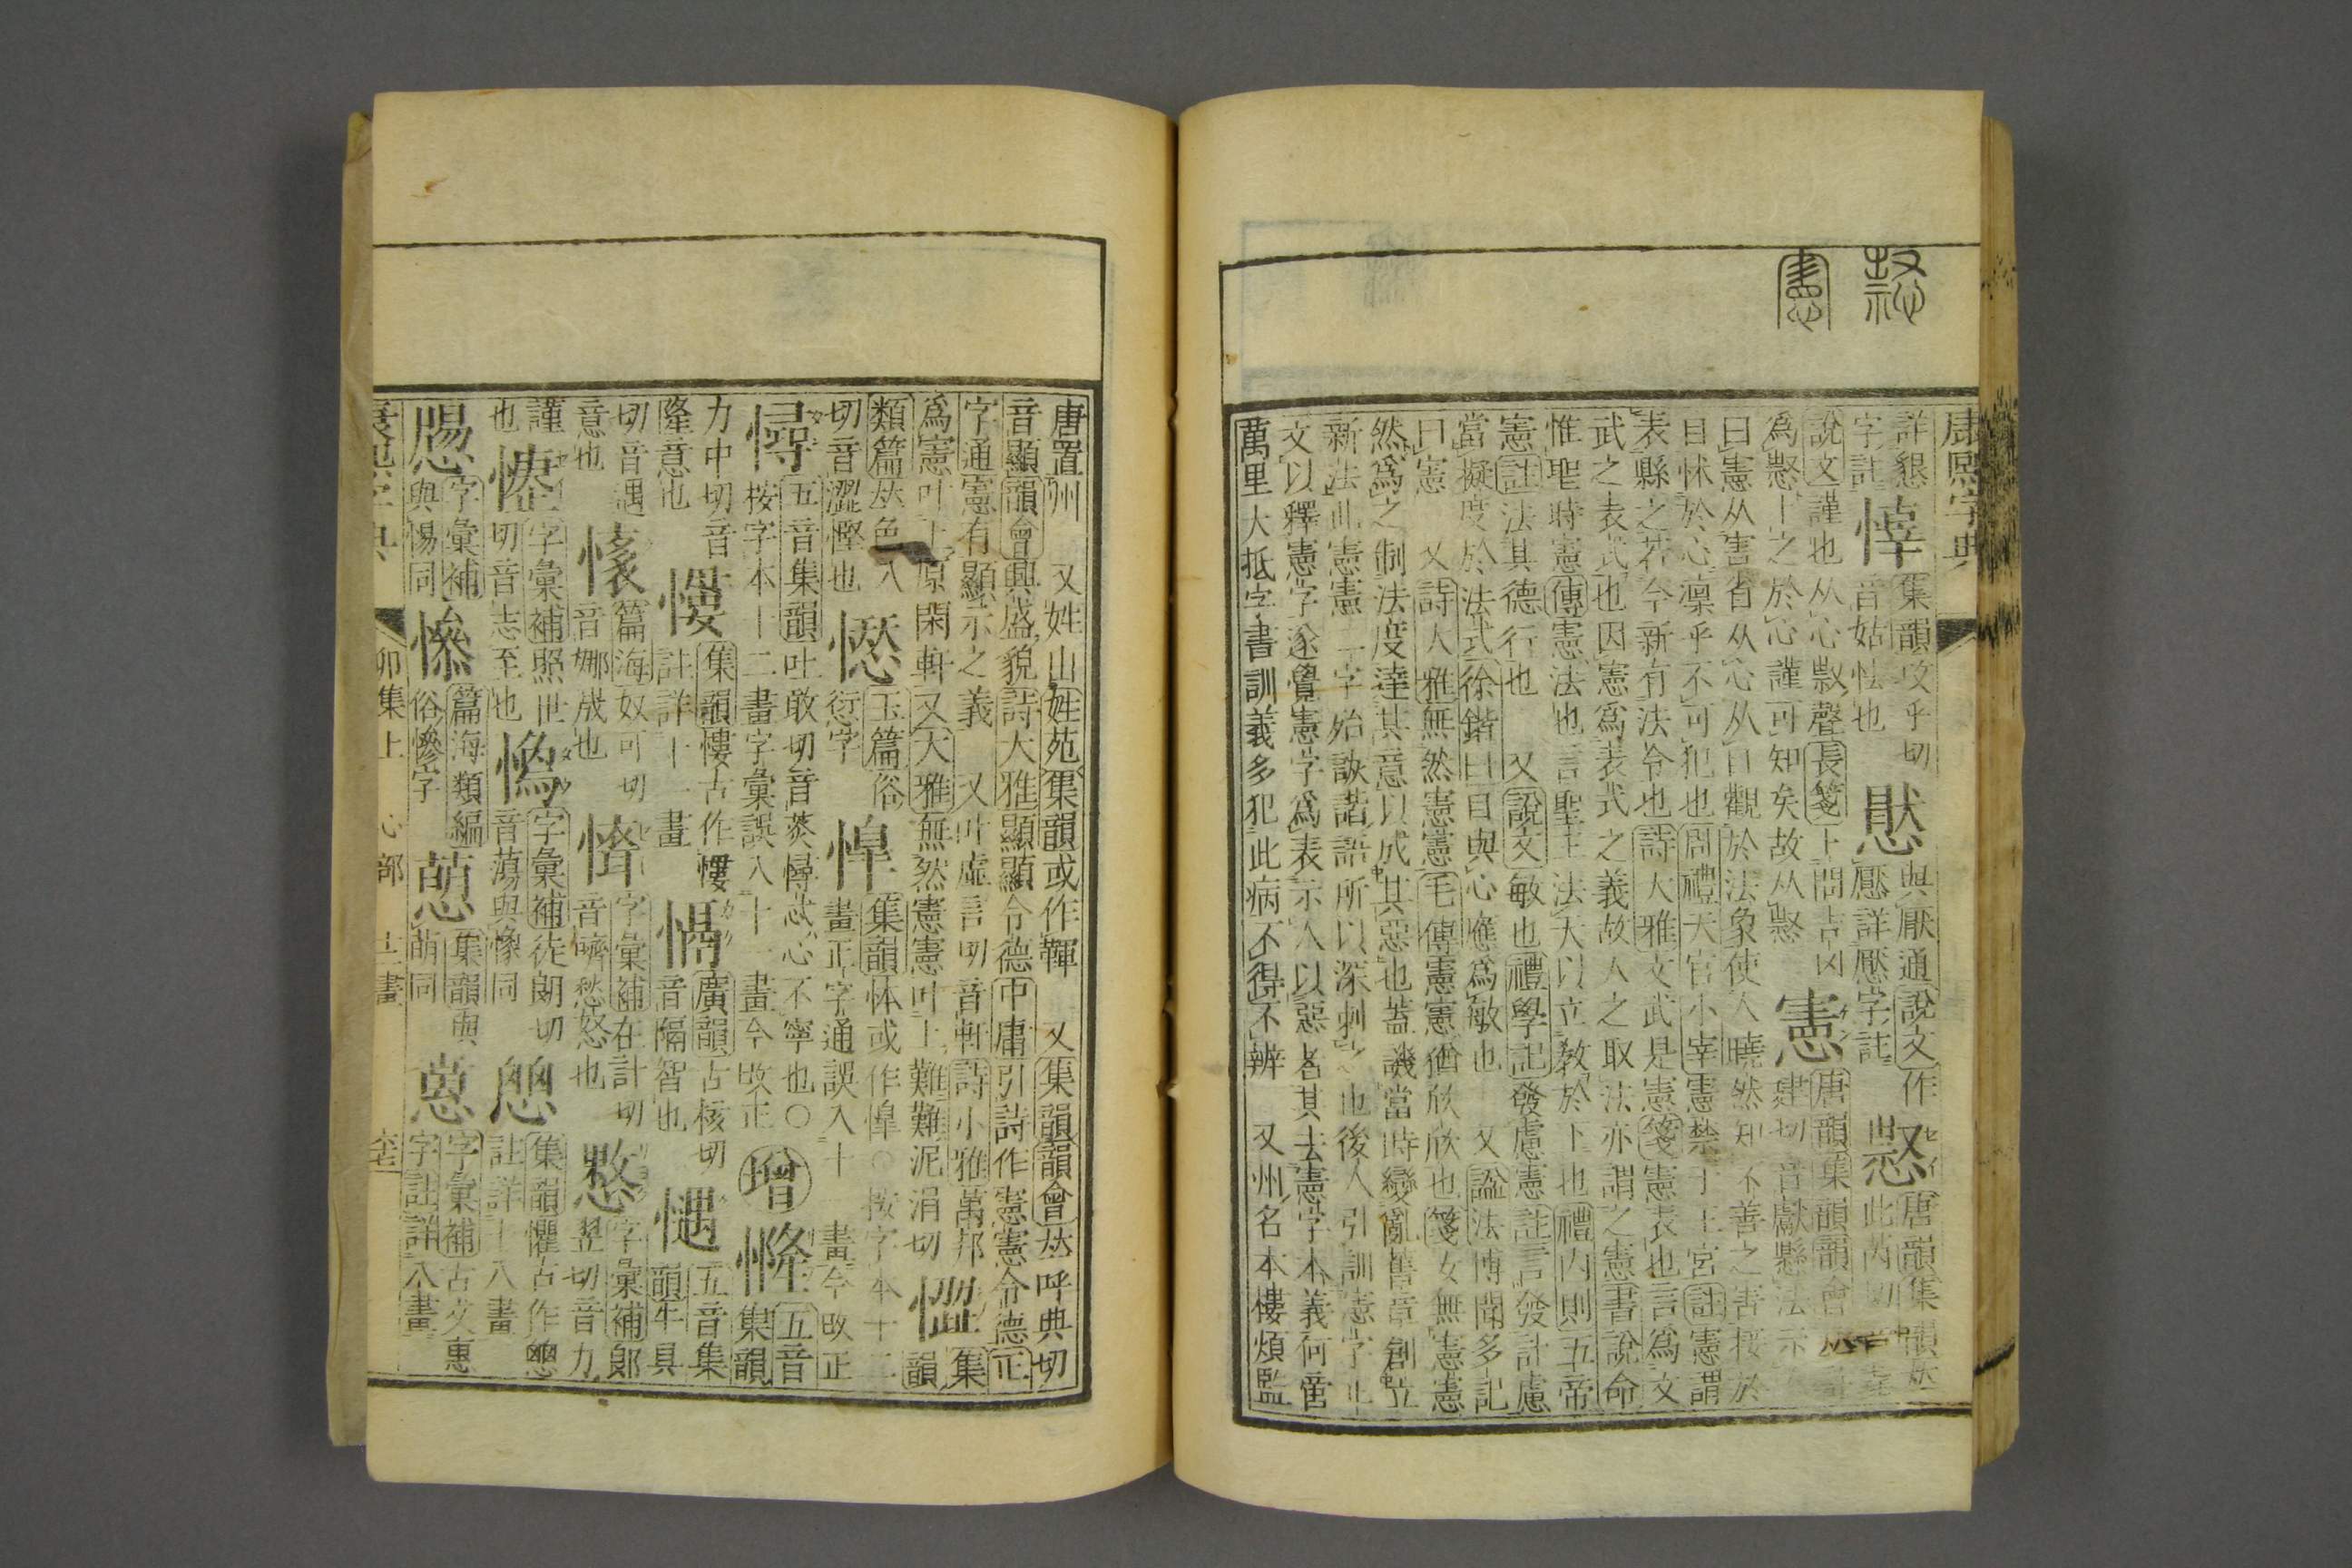 康熙字典
詳懇
集韻攻乎切
與厭通說文作
唐韻集韻
字註
音姑怯也
壓詳壓字註
此芮切
說文謹也从心㱽聲長箋
唐韻集韻韻會
為㥽卜之於心謹可知矣故从㥽
憲
建切音獻縣法示
曰憲从害省从心从目觀於法象使人曉然知不善之害接於
目怵於心凜乎不可犯也周禮天官小宰憲禁于王宮註憲謂
表縣之若今新有法令也詩大雅文武是憲箋憲表也言為文
武之表式也因憲為表式之義故人之取法亦謂之憲書說命
惟聖時憲傳憲法也言聖王法天以立教於下也禮內則五帝
憲註法其德行也 又說文敏也禮學記發慮憲註言發計慮
當擬度於法式徐鍇曰目與心應為敏也 又諡法博聞多記
曰憲 又詩大雅無然憲憲毛傳憲憲猶欣欣也箋女無憲憲
然為之制法度達其意以成其惡也蓋譏當時變亂舊章創立
新法此憲憲二字殆訣諧語所以深刺之也後人引訓憲字止
文以釋憲字遂覺憲字為表示人以惡者其去憲字本義何啻
萬里大抵字書訓義多犯此病不得不辨 又州名本樓煩監
唐置州 又姓山姓苑集韻或作韗 又集韻韻會𠀤呼典切
音顯韻會興盛貌詩大雅顯顯令德中庸引詩作憲憲令德正
字通憲有顯示之義 又叶虛言切音軒詩小雅萬邦
為憲叶上原閑軒又大雅無然憲憲叶上難難泥涓切
集韻
類篇𠀤色入
玉篇俗
集韻㤓或作愅○按字本十二
切音澀慳也
愆字
畫正字通誤入十一畫今改正
憛
五音集韻吐敢切音菼憛忒心不寧也○
按字本十二畫字彙誤入十一畫今改正
增
五音集韻
力中切音
隆意也
慺
集韻慺古作
註詳十一畫
廣韻古核切
音隔智也
五音集韻牛具
切音遇
意也
篇海奴可切
音娜
字彙補在計切
音嚌愁怒也
字彙補郎
翌切音力
謹也
字彙補照世
切音志至也
字彙補徒朗切
音蕩與像同
集韻懼古作
註詳十八畫
字彙補
與惕同
篇海類編
俗慘字
集韻與
萌同
字彙補古文惠
字註詳八畫
康熙字典
卯集上
心部
十二畫